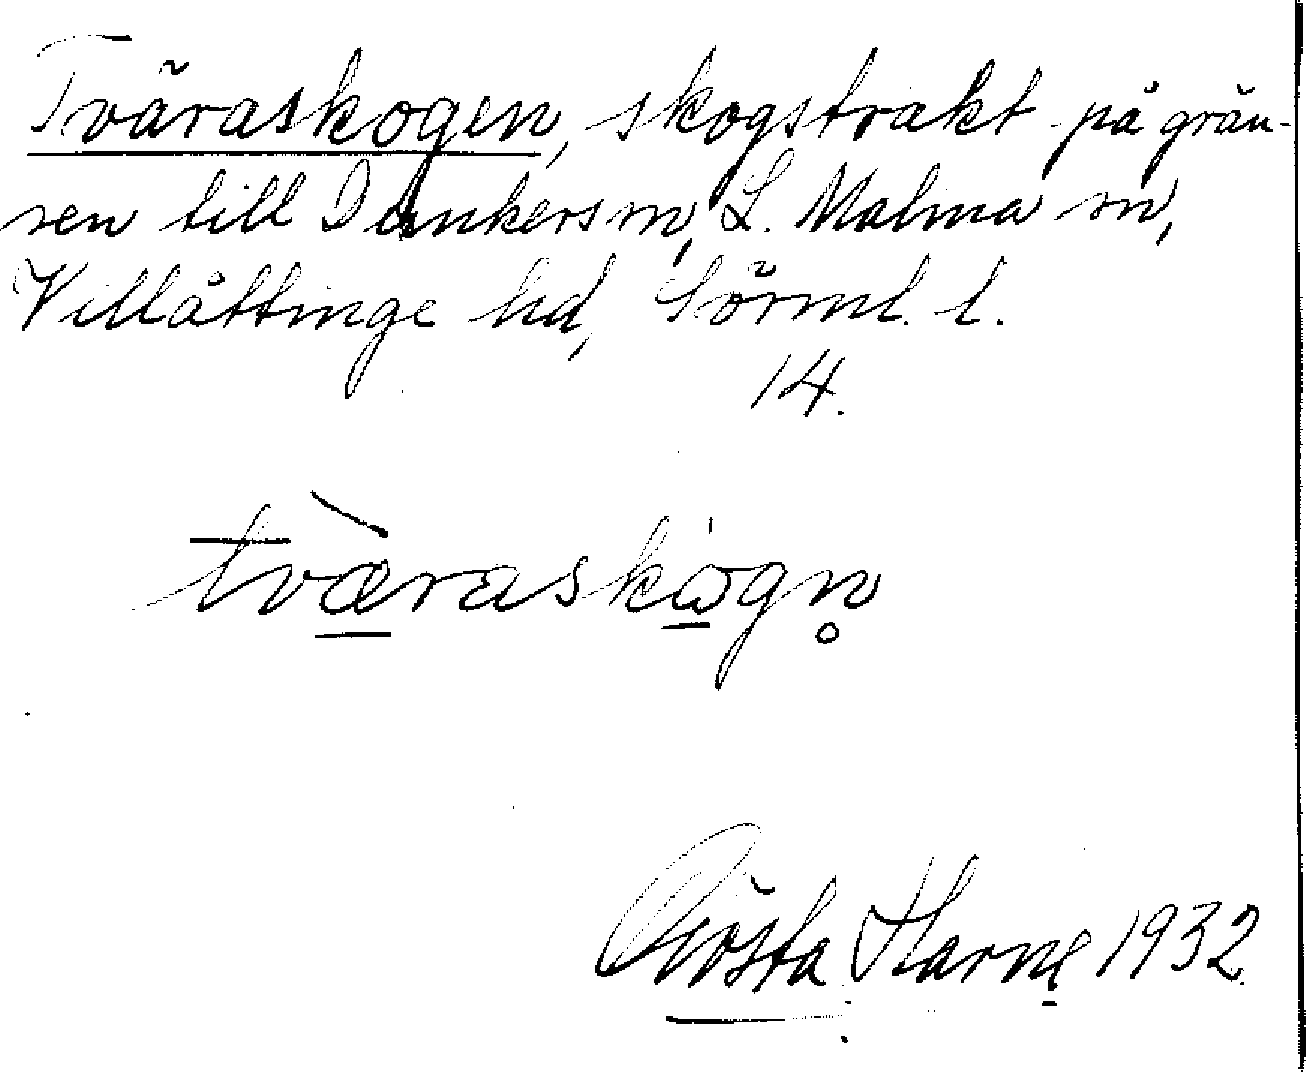 Tväraskogen, skogstrakt på grän-
sen till Dunkers sn, L. Malma sn,
Villåttinge hd, Sörml. l.
14.
tvæ̀raskωgn̥
Gösta Harne 1932